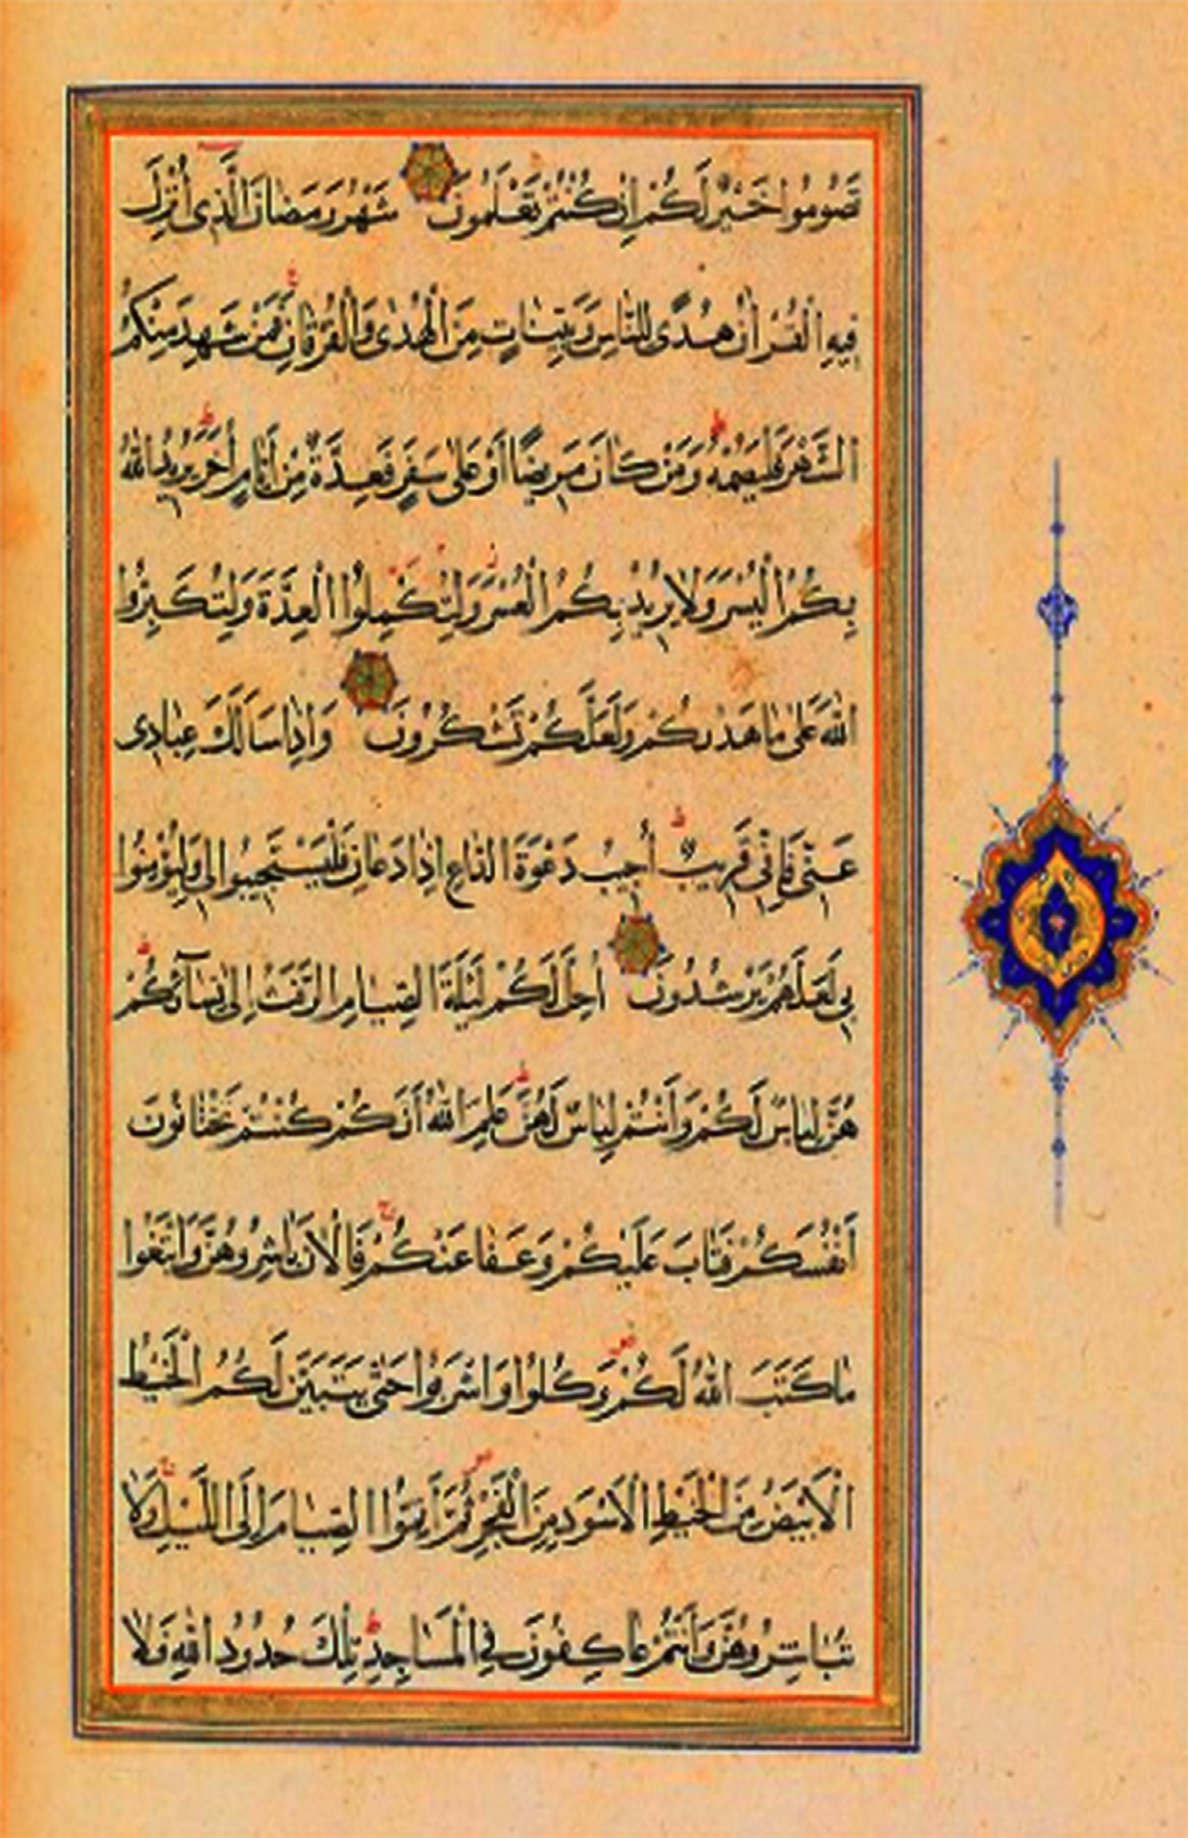 تَصُومُوا خَيْرٌ لَكُمْ اِنْ كُنْتُمْ تَعْلَمُونَ شَهْرُ رَمَضَانَ الَّذِى اُنْزِلَ
فِيهِ الْقُرْاٰنُ هُدًى لِلنَّاسِ وَبَيِّنَاتٍ مِنَ الْهُدٰى وَالْفُرْقَانِ فَمَنْ شَهِدَ مِنْكُمُ
الشَّهْرَ فَلْيَصُمْهُ وَمَنْ كَانَ مَرِيضًا اَوْ عَلٰى سَفَرٍ فَعِدَّةٌ مِنْ اَيَّامٍ اُخَرَ يُرِيدُ اللّٰهُ
بِكُمُ الْيُسْرَ وَلَا يُرِيدُ بِكُمُ الْعُسْرَ وَلِتُكْمِلُوا الْعِدَّةَ وَلِتُكَبِّرُوا
اللّٰهَ عَلٰى مَا هَدٰيكُمْ وَلَعَلَّكُمْ تَشْكُرُونَ وَاِذَا سَاَلَكَ عِبَادِى
عَنِّى فَاِنِّى قَرِيبٌ اُجِيبُ دَعْوَةَ الدَّاعِ اِذَا دَعَانِ فَلْيَسْتَجِيبُوا لِى وَلْيُؤْمِنُوا
بِى لَعَلَّهُمْ يَرْشُدُونَ اُحِلَّ لَكُمْ لَيْلَةَ الصِّيَامِ الرَّفَثُ اِلٰى نِسَآئِكُمْ
هُنَّ لِبَاسٌ لَكُمْ وَاَنْتُمْ لِبَاسٌ لَهُنَّ عَلِمَ اللّٰهُ اَنَّكُمْ كُنْتُمْ تَخْتَانُونَ
اَنْفُسَكُمْ فَتَابَ عَلَيْكُمْ وَعَفَا عَنْكُمْ فَالْاٰنَ بَاشِرُوهُنَّ وَابْتَغُوا
مَا كَتَبَ اللّٰهُ لَكُمْ وَكُلُوا وَاشْرَبُوا حَتّٰى يَتَبَيَّنَ لَكُمُ الْخَيْطُ
الْاَبْيَضُ مِنَ الْخَيْطِ الْاَسْوَدِ مِنَ الْفَجْرِ ثُمَّ اَتِمُّوا الصِّيَامَ اِلَى اللَّيْلِ وَلَا
تُبَاشِرُوهُنَّ وَاَنْتُمْ عَاكِفُونَ فِى الْمَسَاجِدِ تِلْكَ حُدُودُ اللّٰهِ فَلَا